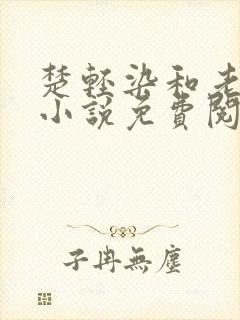 楚輕染和老
小說免費閱
子冉無塵